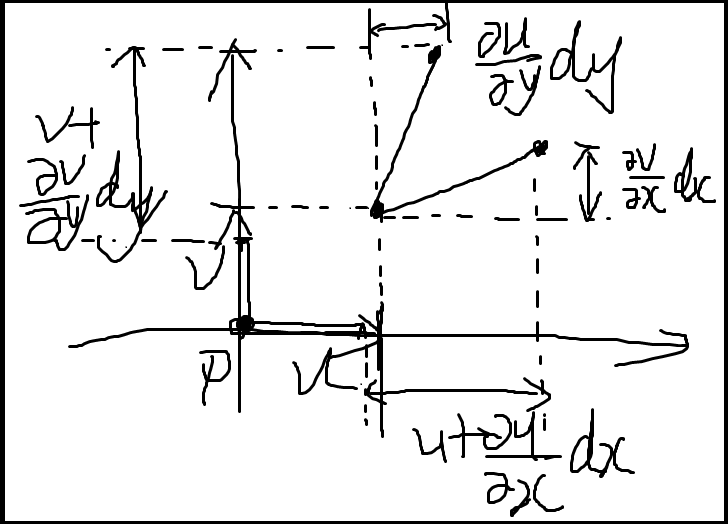 ∂u/∂y dy
v+
∂v/∂y dy
∂v/∂x dx
v
P
u
u+∂u/∂x dx